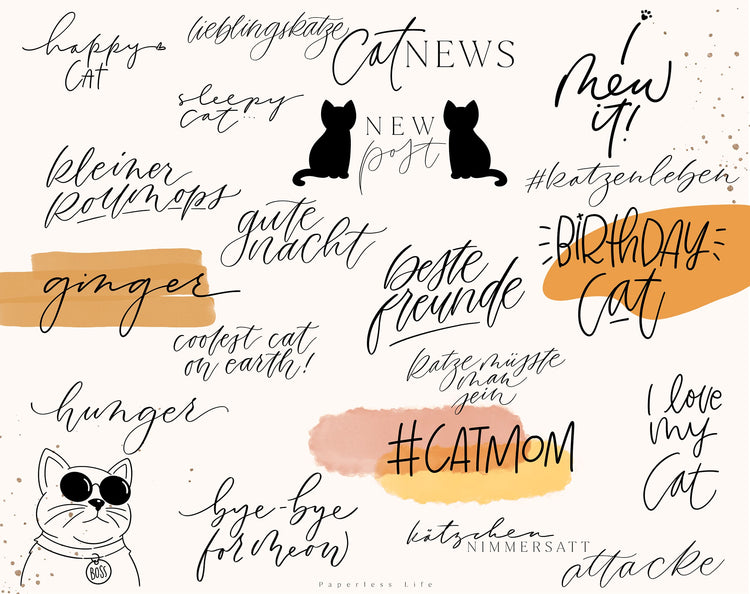 happy
CAT
lieblingskatze
Cat NEWS
I
mew
it!
sleepy
cat...
NEW
post
#katzenleben
kleiner
Rollmops
gute
nacht
BIRTHDAY
Cat
beste
freunde
ginger
coolest cat
on earth!
katze müsste
man
sein
hunger
I love
my
Cat
#CATMOM
BOSS
bye-bye
for meow
kätzchen
NIMMERSATT
attacke
Paperless Life